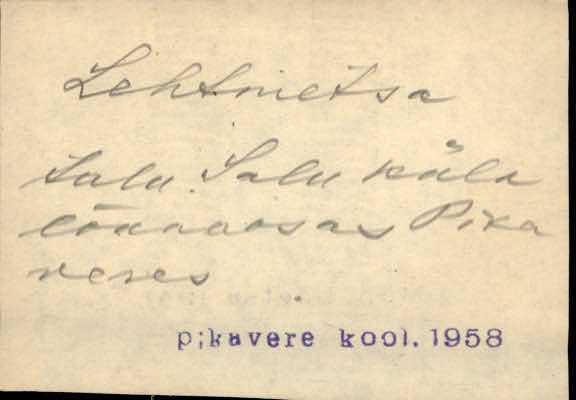 Lehtmetsa
talu. Salu küla
lõunaosas Pika
veres
pikavere kool. 1958